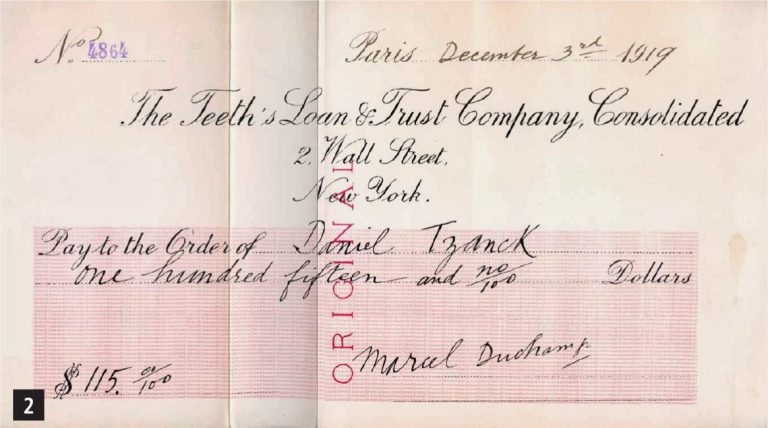 No. 4864
Paris December 3rd 1919
The Teeth's Loan & Trust Company, Consolidated
2. Wall Street,
New York.
ORIGINAL
Pay to the Order of Daniel Tzanck
one hundred fifteen and no/100 Dollars
Marcel Duchamp
$ 115. oo/100
2